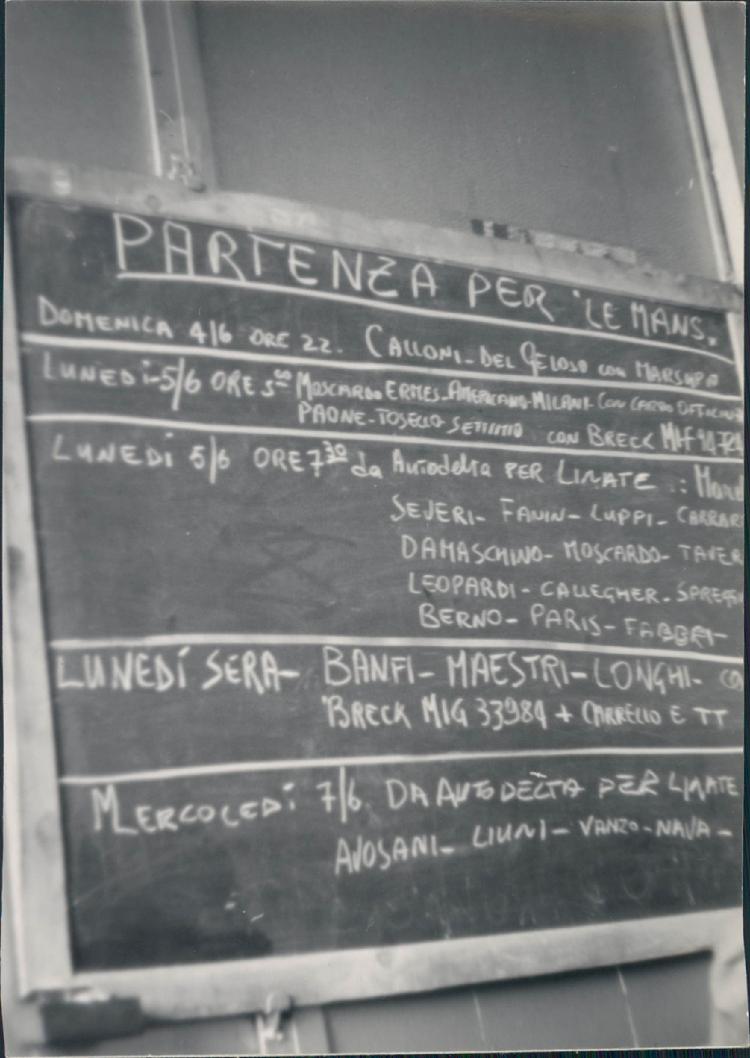 PARTENZA PER LE MANS.
DOMENICA 4/6 ORE 22. CALLONI-DEL GELOSO con
LUNEDI-5/6 ORE 5⁰⁰ MOSCARDO ERMES-AMERICANO-MILANI-CON CARRO
PAONE-TOSELLO SETTIMIO CON BRECK
LUNEDI 5/6 ORE 7³⁰ da Autodelta PER LINATE :
SEVERI- FANIN- LUPPI- CARRARI
DAMASCHINO- MOSCARDO-
LEOPARDI- CALLEGHER-
BERNO- PARIS- FABBRI-
LUNEDÍ SERA- BANFI- MAESTRI-LONGHI-
BRECK MIG 33984 + CARRELLO E TT
MERCOLEDÍ 7/6 DA AUTODELTA PER LINATE
AVOSANI- LIUNI- VANZO-NAVA-